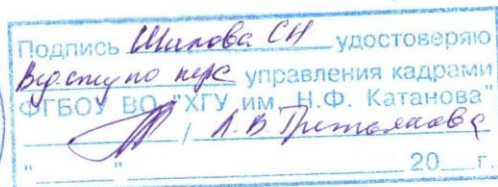 Подпись Шилова СН удостоверяю
управления кадрами
ФГБОУ ВО "ХГУ им. Н.Ф. Катанова"
/ Л.В. Третьякова
" " 20 г.